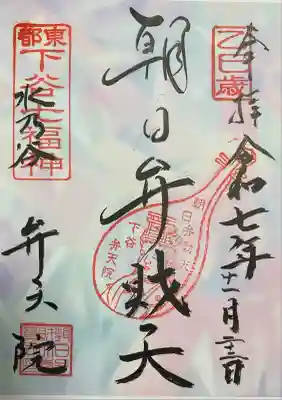 乙巳歳
奉拝
令和七年十一月二十三日
朝日弁財天
朝日弁財天
下谷
弁天院
東都
下谷七福神
水乃谷
弁天院